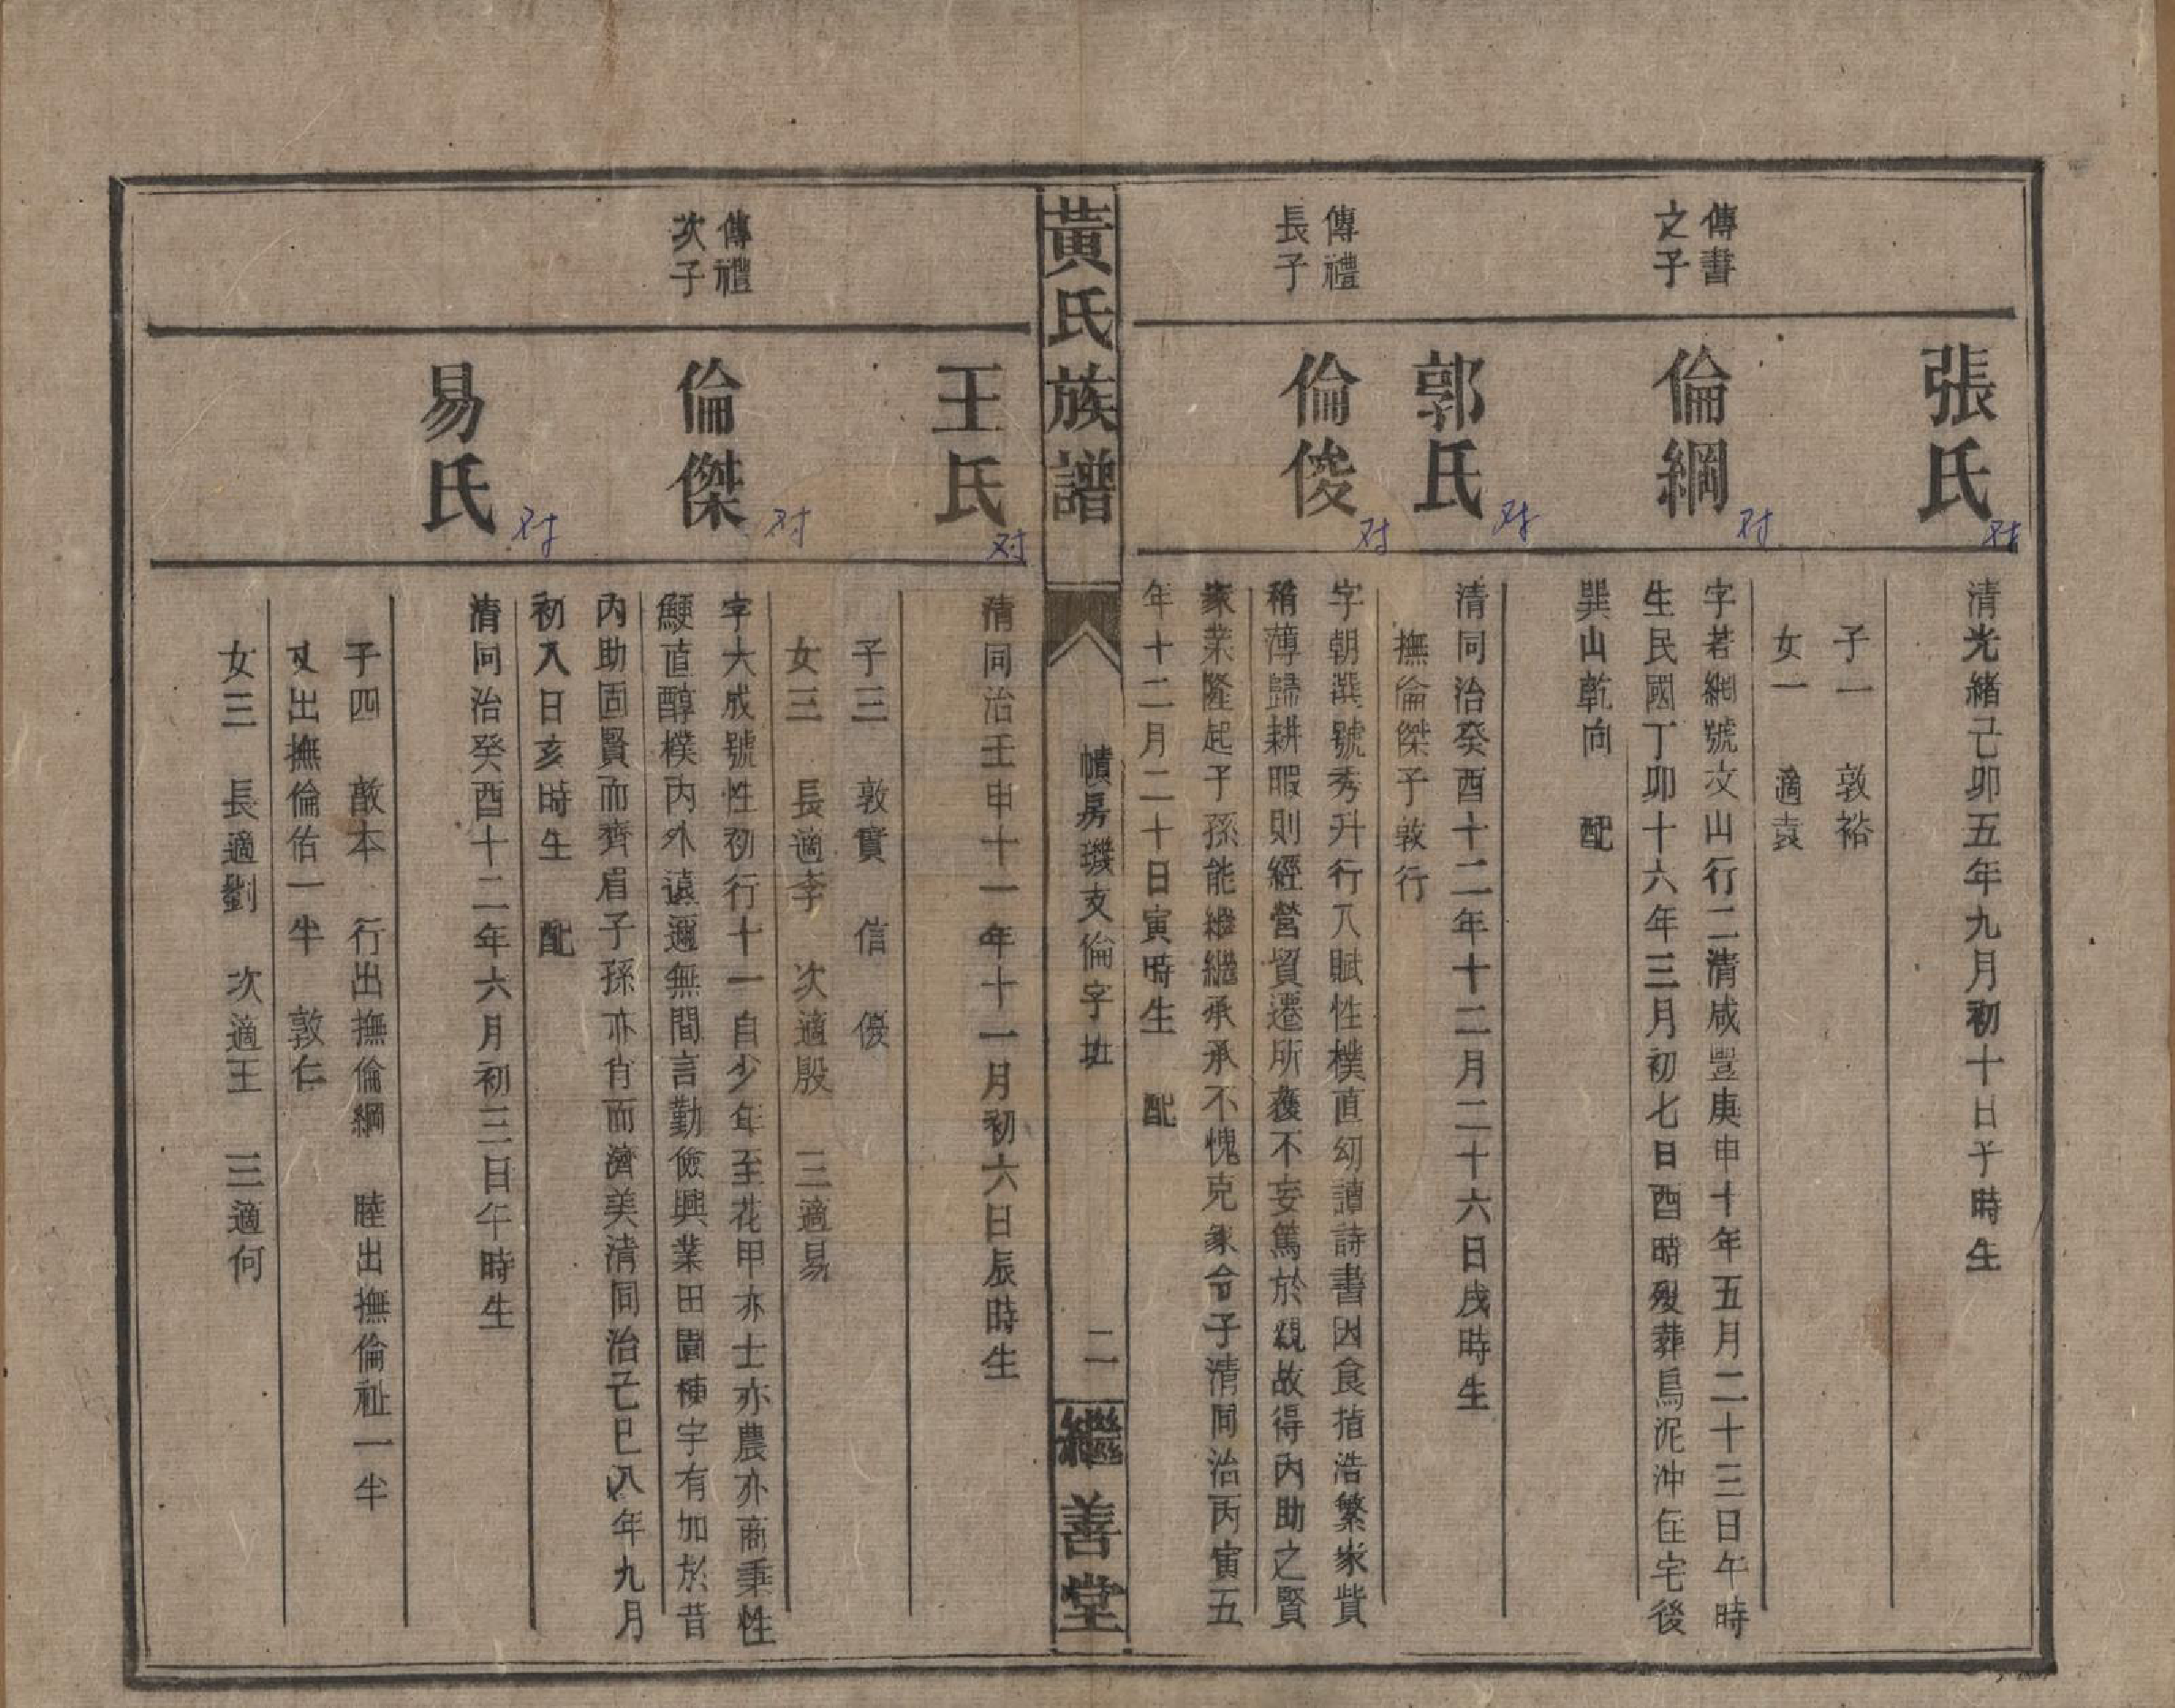 張氏
对
清光緒己卯五年九月初十日子時生
子一 敦裕
女一 適袁
傳書
之子
倫綱
对
字若網號文山行二清咸豐庚申十年五月二十三日午時
生民國丁卯十六年三月初七日酉時歿葬烏泥冲住宅後
巽山乾向 配
郭氏
对
清同治癸酉十二年十二月二十六日戌時生
撫倫傑子敦行
傳禮
長子
倫俊
对
字朝選號秀升行八賦性樸直幼讀詩書因食指浩繁家貲
稍薄歸耕暇則經營貿遷所獲不妄篤於親故得內助之賢
家業隆起子孫能繼繼承承不愧克家令子清同治丙寅五
年十二月二十日寅時生 配
黃氏族譜
幘房璣支倫字
二
繼善堂
王氏
对
清同治壬申十一年十一月初六日辰時生
子三 敦實 信 優
女三 長適李 次適殷 三適易
傳禮
次子
倫傑
对
字大成號性初行十一自少年至花甲亦士亦農亦商秉性
鯁直醇樸內外遠邇無間言勤儉興業田園棟宇有加於昔
內助固賢而齊眉子孫亦肖而濟美清同治己巳八年九月
初八日亥時生 配
易氏
对
清同治癸酉十二年六月初三日午時生
子四 敦本 行出撫倫綱 睦出撫倫祉一半
又出撫倫佑一半 敦仁
女三 長適劉 次適王 三適何